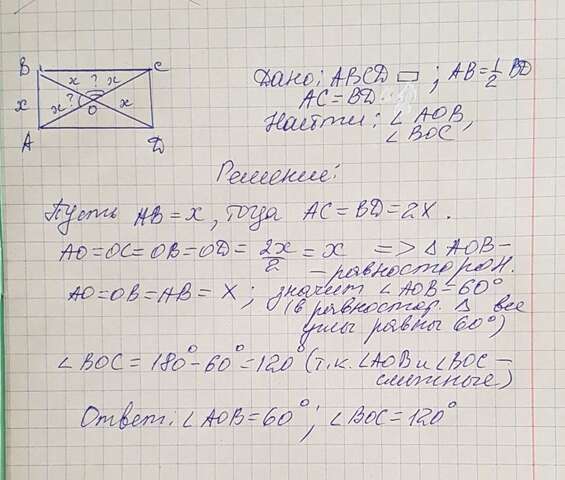 B x ? x C
x x ? x
O
A D
Дано: ABCD ▭ ; AB = 1/2 BD
AC = BD
Найти: ∠ AOB,
∠ BOC
Решение:
Пусть AB = x, тогда AC = BD = 2x.
AO = OC = OB = OD = 2x/2 = x => Δ AOB –
– равносторон.
AO = OB = AB = x ; значит ∠AOB = 60°
(в равностор. Δ все
углы равны 60°)
∠ BOC = 180° – 60° = 120° (т.к. ∠AOB и ∠BOC –
смежные)
Ответ: ∠ AOB = 60° ; ∠ BOC = 120°